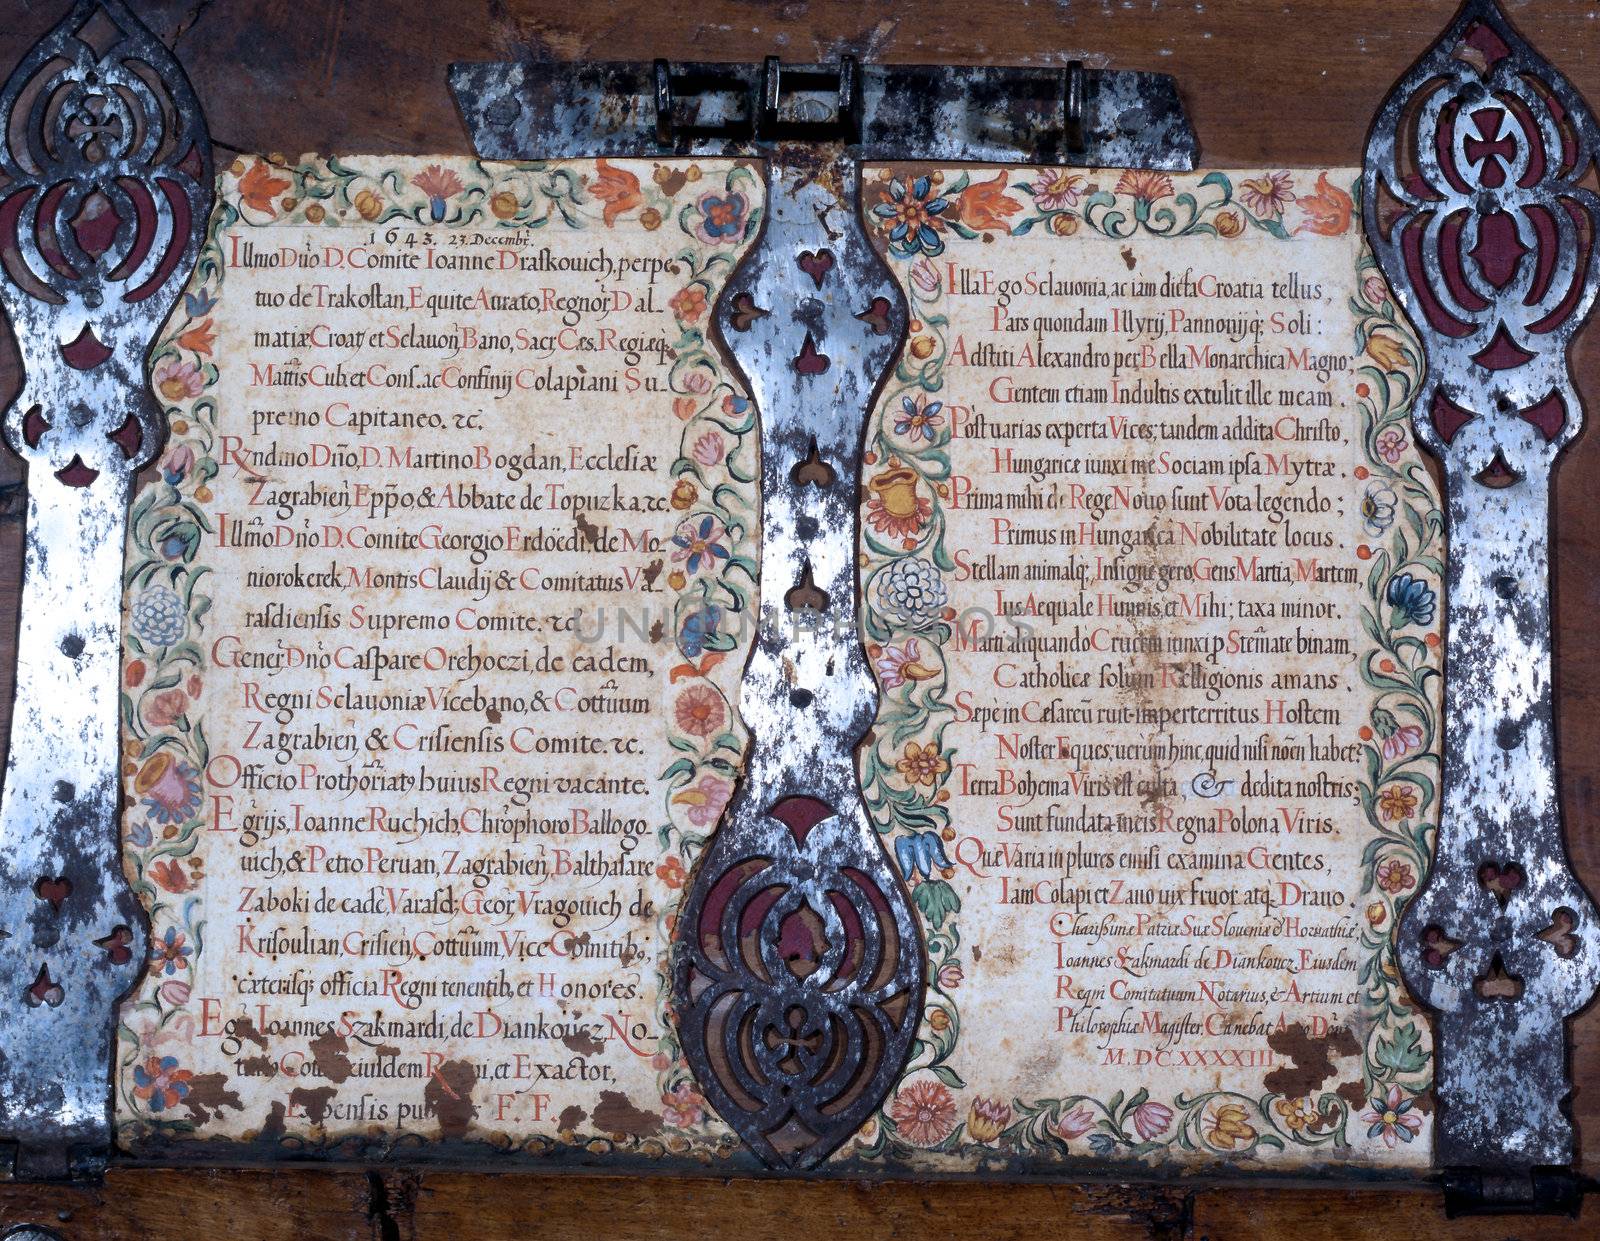 1643. 23. Decembr.
Illmo Dno D. Comite Ioanne Draskouich, perpe
tuo de Trakostan, Equite Aurato, Regnor. Dal-
matiæ, Croat. et Sclauon. Bano, Sacr. Cæs. Regiæq;
Mattis Cub. et Cons. ac Confinij Colapiani Su-
premo Capitaneo. &c.
Rndmo Dño, D. Martino Bogdan, Ecclesiæ
Zagrabien. Eppo, & Abbate de Topuzka. &c.
Illmo Dño D. Comite Georgio Erdöedi, de Mo-
niorokerek, Montis Claudij & Comitatus Va-
rasdiensis Supremo Comite. &c.
Gener. Dño Caspare Orehoczi, de eadem,
Regni Sclauoniæ Vicebano, & Cottuum
Zagrabien. & Crisiensis Comite. &c.
Officio Prothoriat9 huius Regni vacante.
Egrijs, Ioanne Ruchich, Chrophoro Ballogo-
uich, & Petro Peruan, Zagrabien. Balthasare
Zaboki de eadē, Varasd; Geor. Vragouich de
Krisoulian, Crisien, Cottuum, Vice Comitib9;
cæterisq; officia Regni tenentib. et Honores.
Egr. Ioannes Szakmardi, de Diankoucz, No-
eiusdem et Exactor,
F. F.
Illa Ego Sclauonia, ac iàm dicta Croatia tellus,
Pars quondam Illyrij, Pannonijq; Soli:
Adstiti Alexandro per Bella Monarchica Magno;
Gentem etiam Indultis extulit ille meam.
Pòst uarias experta Vices; tandem addita Christo,
Hungaricæ iunxi me Sociam ipsa Mytræ.
Prima mihi de Rege Nouo sunt Vota legendo;
Primus in Hungarica Nobilitate locus.
Stellam animalq; Insigne gero, Gens Martia, Martem,
Ius Aequale Hunnis, et Mihi; taxa minor.
Marti aliquandò Crucem iunxi p Stemate binam,
Catholicæ solum Relligionis amans.
Sæpè in Cæsareū ruit imperterritus Hostem
Noster Eques; uerùm hinc, quid nisi noēn habet?
Terra Bohema Viris est culta, & dedita nostris;
Sunt fundata meis Regna Polona Viris.
Quæ Varia in plures emisi examina Gentes,
Iàm Colapi et Zauo uix fruor atq; Drauo.
Charissimæ Patriæ Suæ Sloueniæ & Horuathiæ,
Ioannes Szakmardi de Diankoucz. Eiusdem
Regni Comitatuum Notarius, & Artium et
Philosophiæ Magister, Canebat Anno Dom.
M. DC. XXXXIII
UNIMPHOTOS